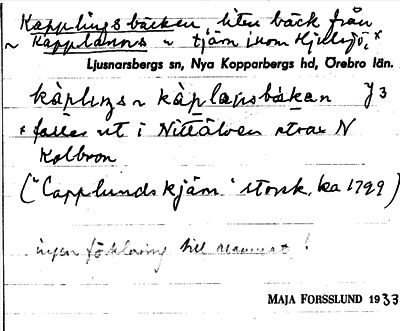 Kapplingsbäcken, liten bäck från
~ Kapplanns ~ tjärn inom Hjulsjö,*
Ljusnarsbergs sn, Nya Kopparbergs hd, Örebro län.
kàplıŋs ~ kàplansbäkan J3
* faller ut i Nittälven strax N
Kolbron
("Capplunds kjärn" storsk. ka 1799)
ingen förklaring till namnet!
MAJA FORSSLUND 1933